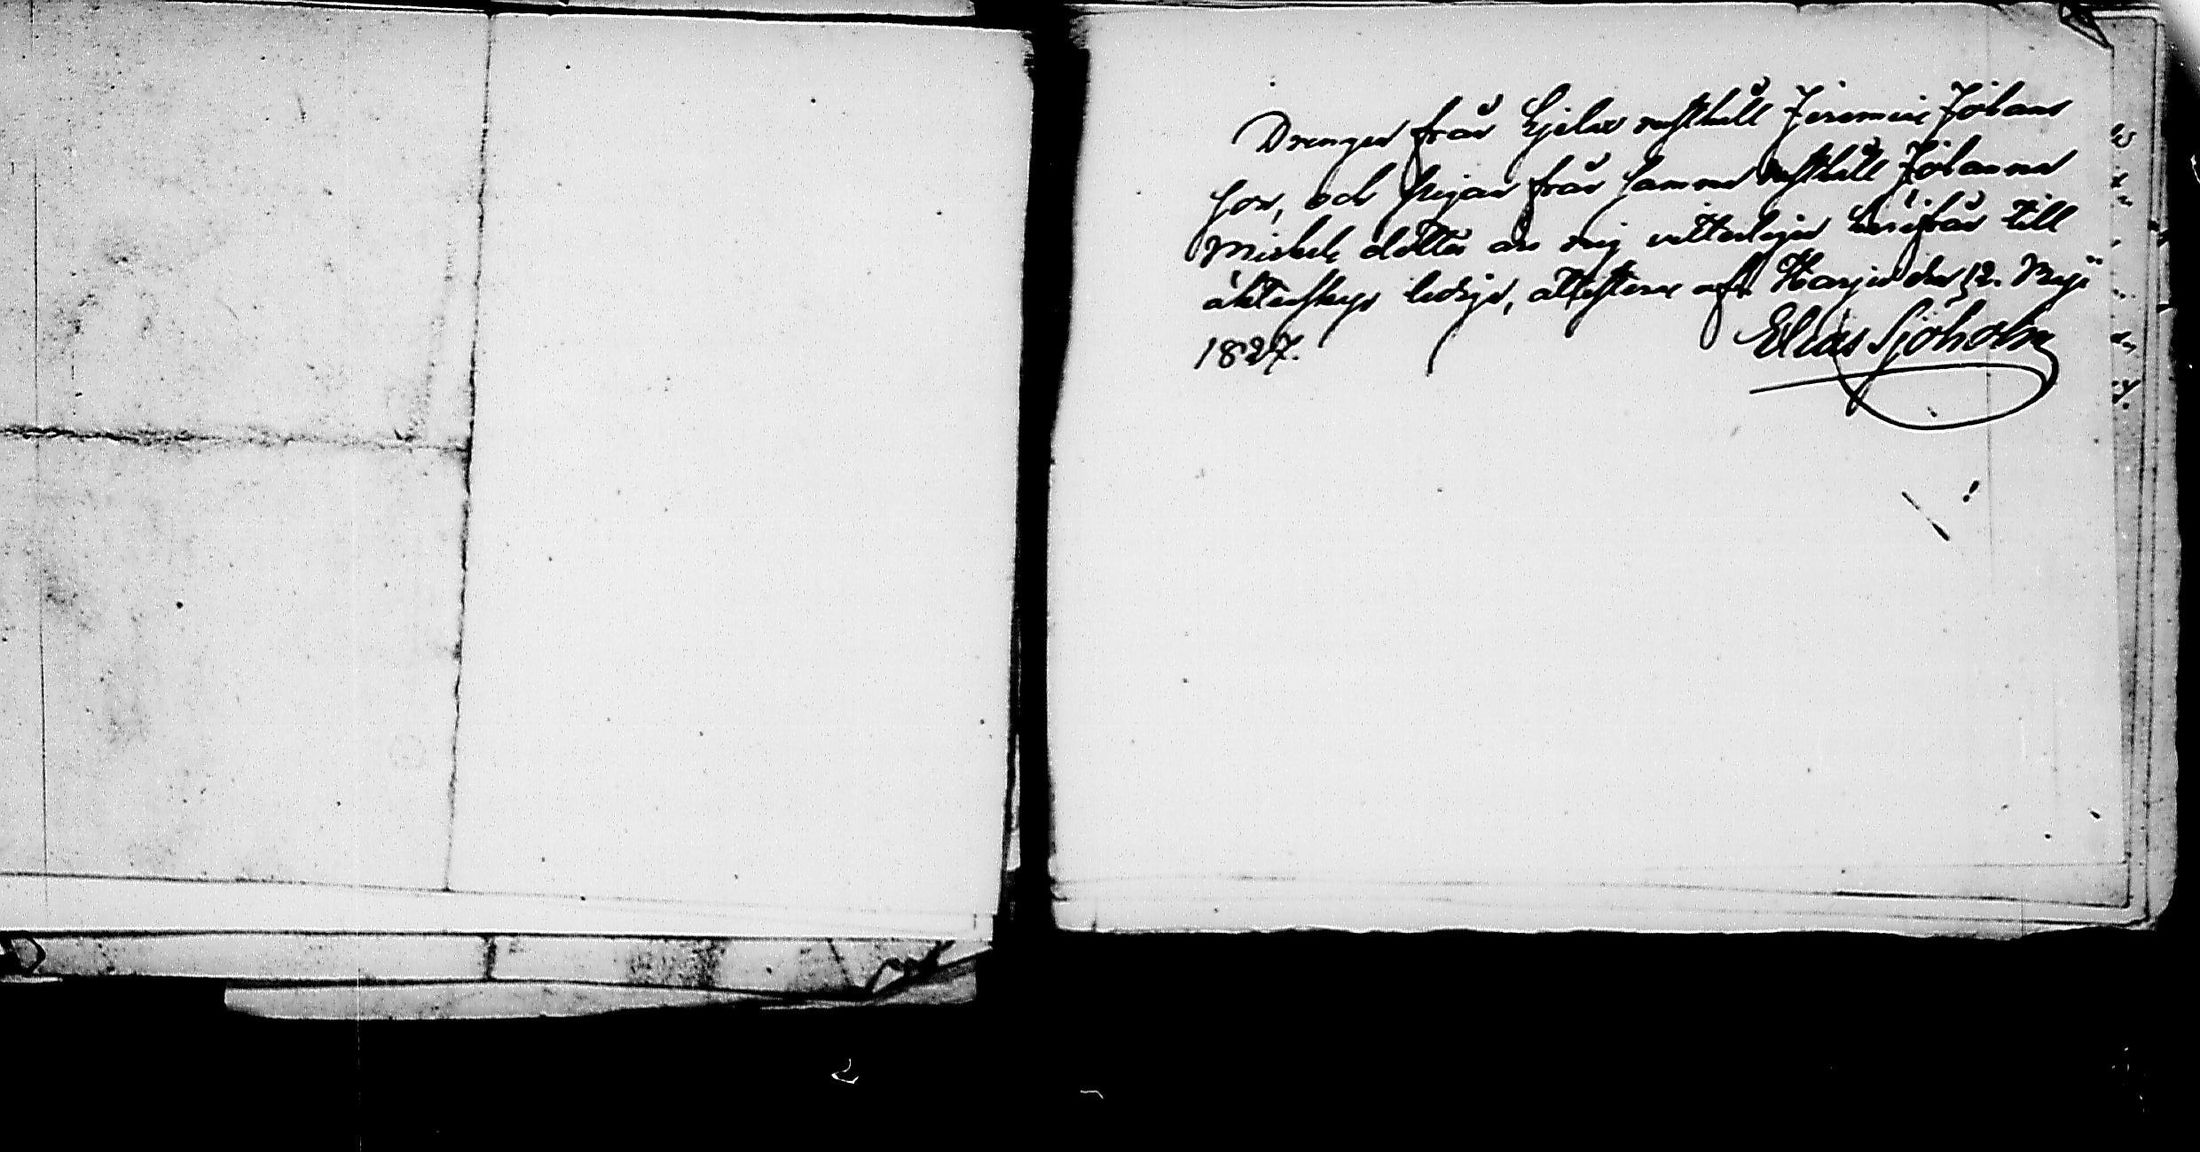 Drengen från Kjelax rusthåll Jeremias Johans
son, och pigan från samma rusthåll Johanna
Michels dotter äro mig vetterligen härifrån till
äktenskap ledige, attesteras af Harju den 12. Maji
1827. Elias Sjöholm